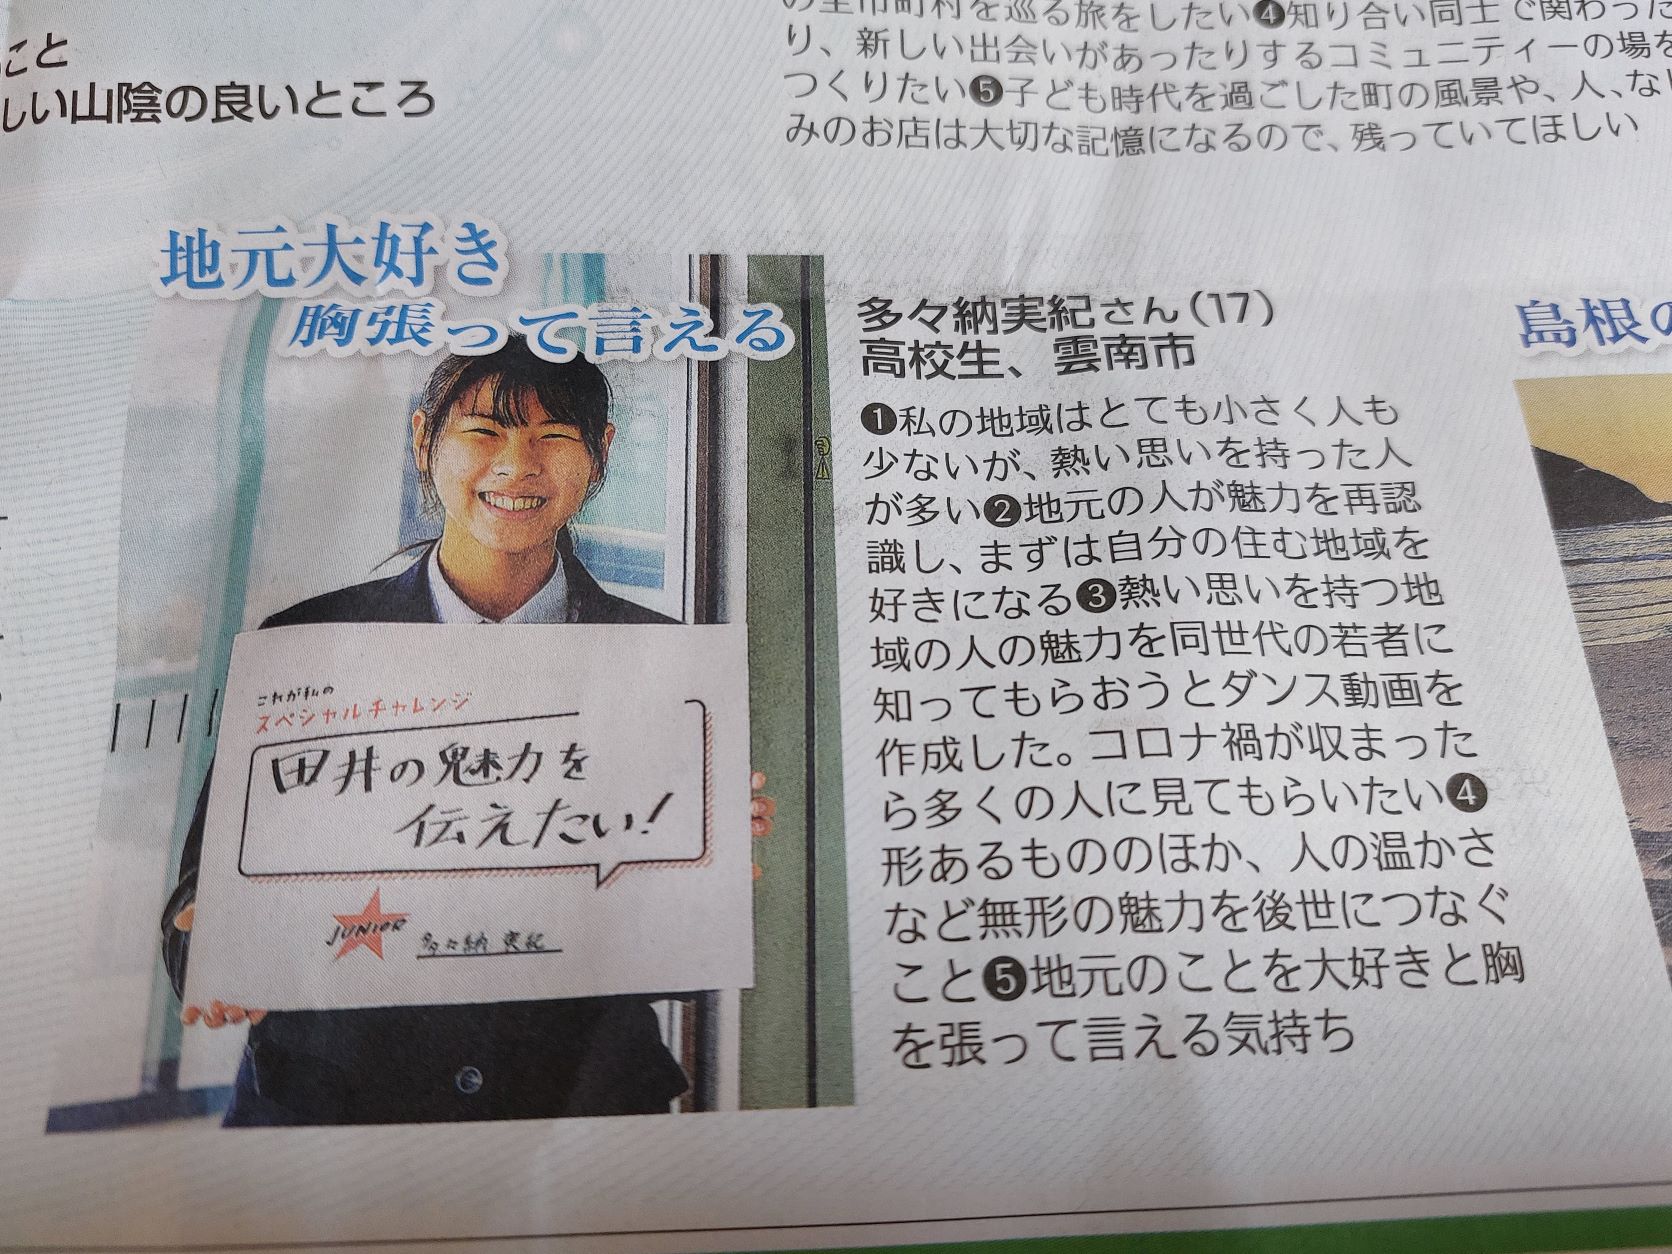 こと
しい山陰の良いところ
の全市町村を巡る旅をしたい❹知り合い同士で関わった
り、新しい出会いがあったりするコミュニティーの場を
つくりたい❺子ども時代を過ごした町の風景や、人、なじ
みのお店は大切な記憶になるので、残っていてほしい
地元大好き
胸張って言える
多々納実紀さん(17)
高校生、雲南市
❶私の地域はとても小さく人も
少ないが、熱い思いを持った人
が多い❷地元の人が魅力を再認
識し、まずは自分の住む地域を
好きになる❸熱い思いを持つ地
域の人の魅力を同世代の若者に
知ってもらおうとダンス動画を
作成した。コロナ禍が収まった
ら多くの人に見てもらいたい❹
形あるもののほか、人の温かさ
など無形の魅力を後世につなぐ
こと❺地元のことを大好きと胸
を張って言える気持ち
これが私の
スペシャルチャレンジ
田井の魅力を
伝えたい!
JUNIOR
多々納 実紀
島根の